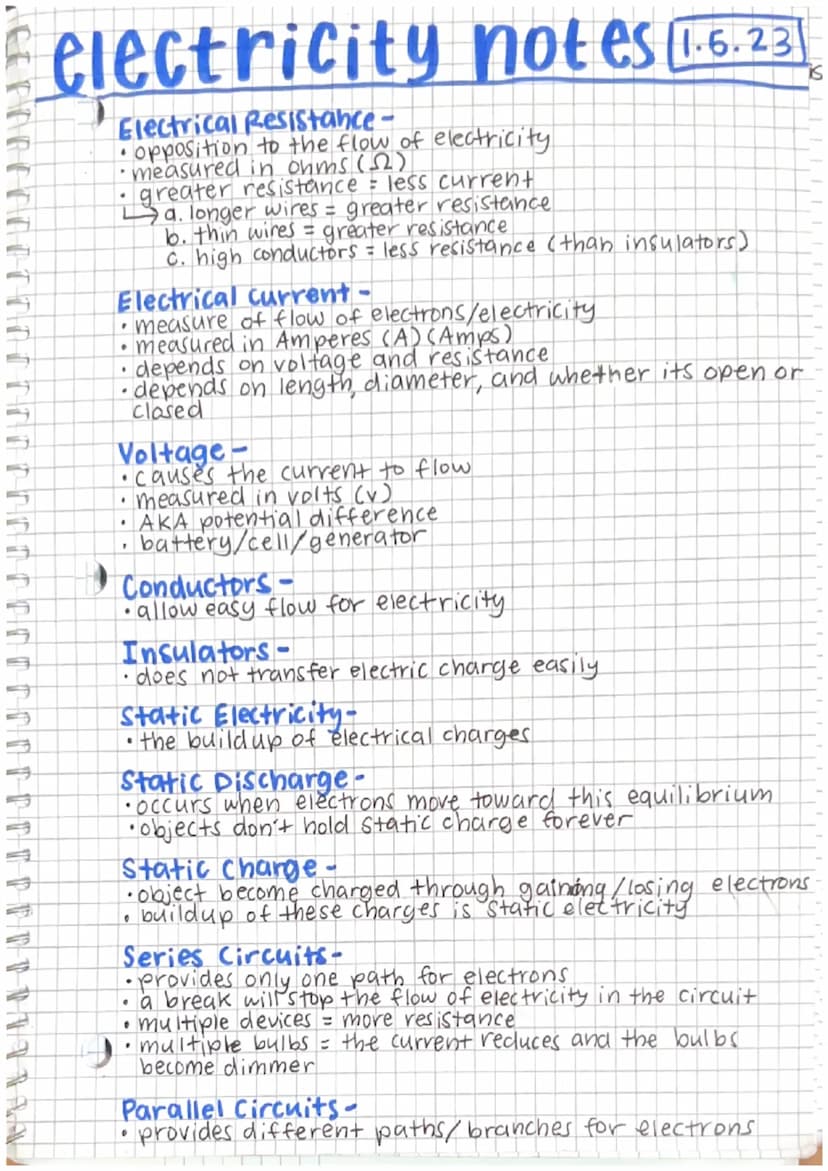 electricity notes 1.6.23
is
Electrical Resistance -
• opposition to the flow of electricity
• measured in ohms (Ω)
• greater resistance = less current
↳ a. longer wires = greater resistance
b. thin wires = greater resistance
c. high conductors = less resistance (than insulators)
Electrical Current -
• measure of flow of electrons/electricity
• measured in Amperes (A) (Amps)
• depends on voltage and resistance
• depends on length, diameter, and whether its open or
closed
Voltage -
• causes the current to flow
• measured in volts (v)
• AKA potential difference
• battery/cell/generator
Conductors -
• allow easy flow for electricity
Insulators -
• does not transfer electric charge easily
Static Electricity -
• the buildup of electrical charges
Static Discharge -
• occurs when electrons move toward this equilibrium
• objects don't hold static charge forever
Static Charge -
• object become charged through gaining/losing electrons
• buildup of these charges is static electricity
Series Circuits -
• provides only one path for electrons
• a break will stop the flow of electricity in the circuit
• multiple devices = more resistance
• multiple bulbs = the current reduces and the bulbs
become dimmer
Parallel Circuits -
• provides different paths/branches for electrons